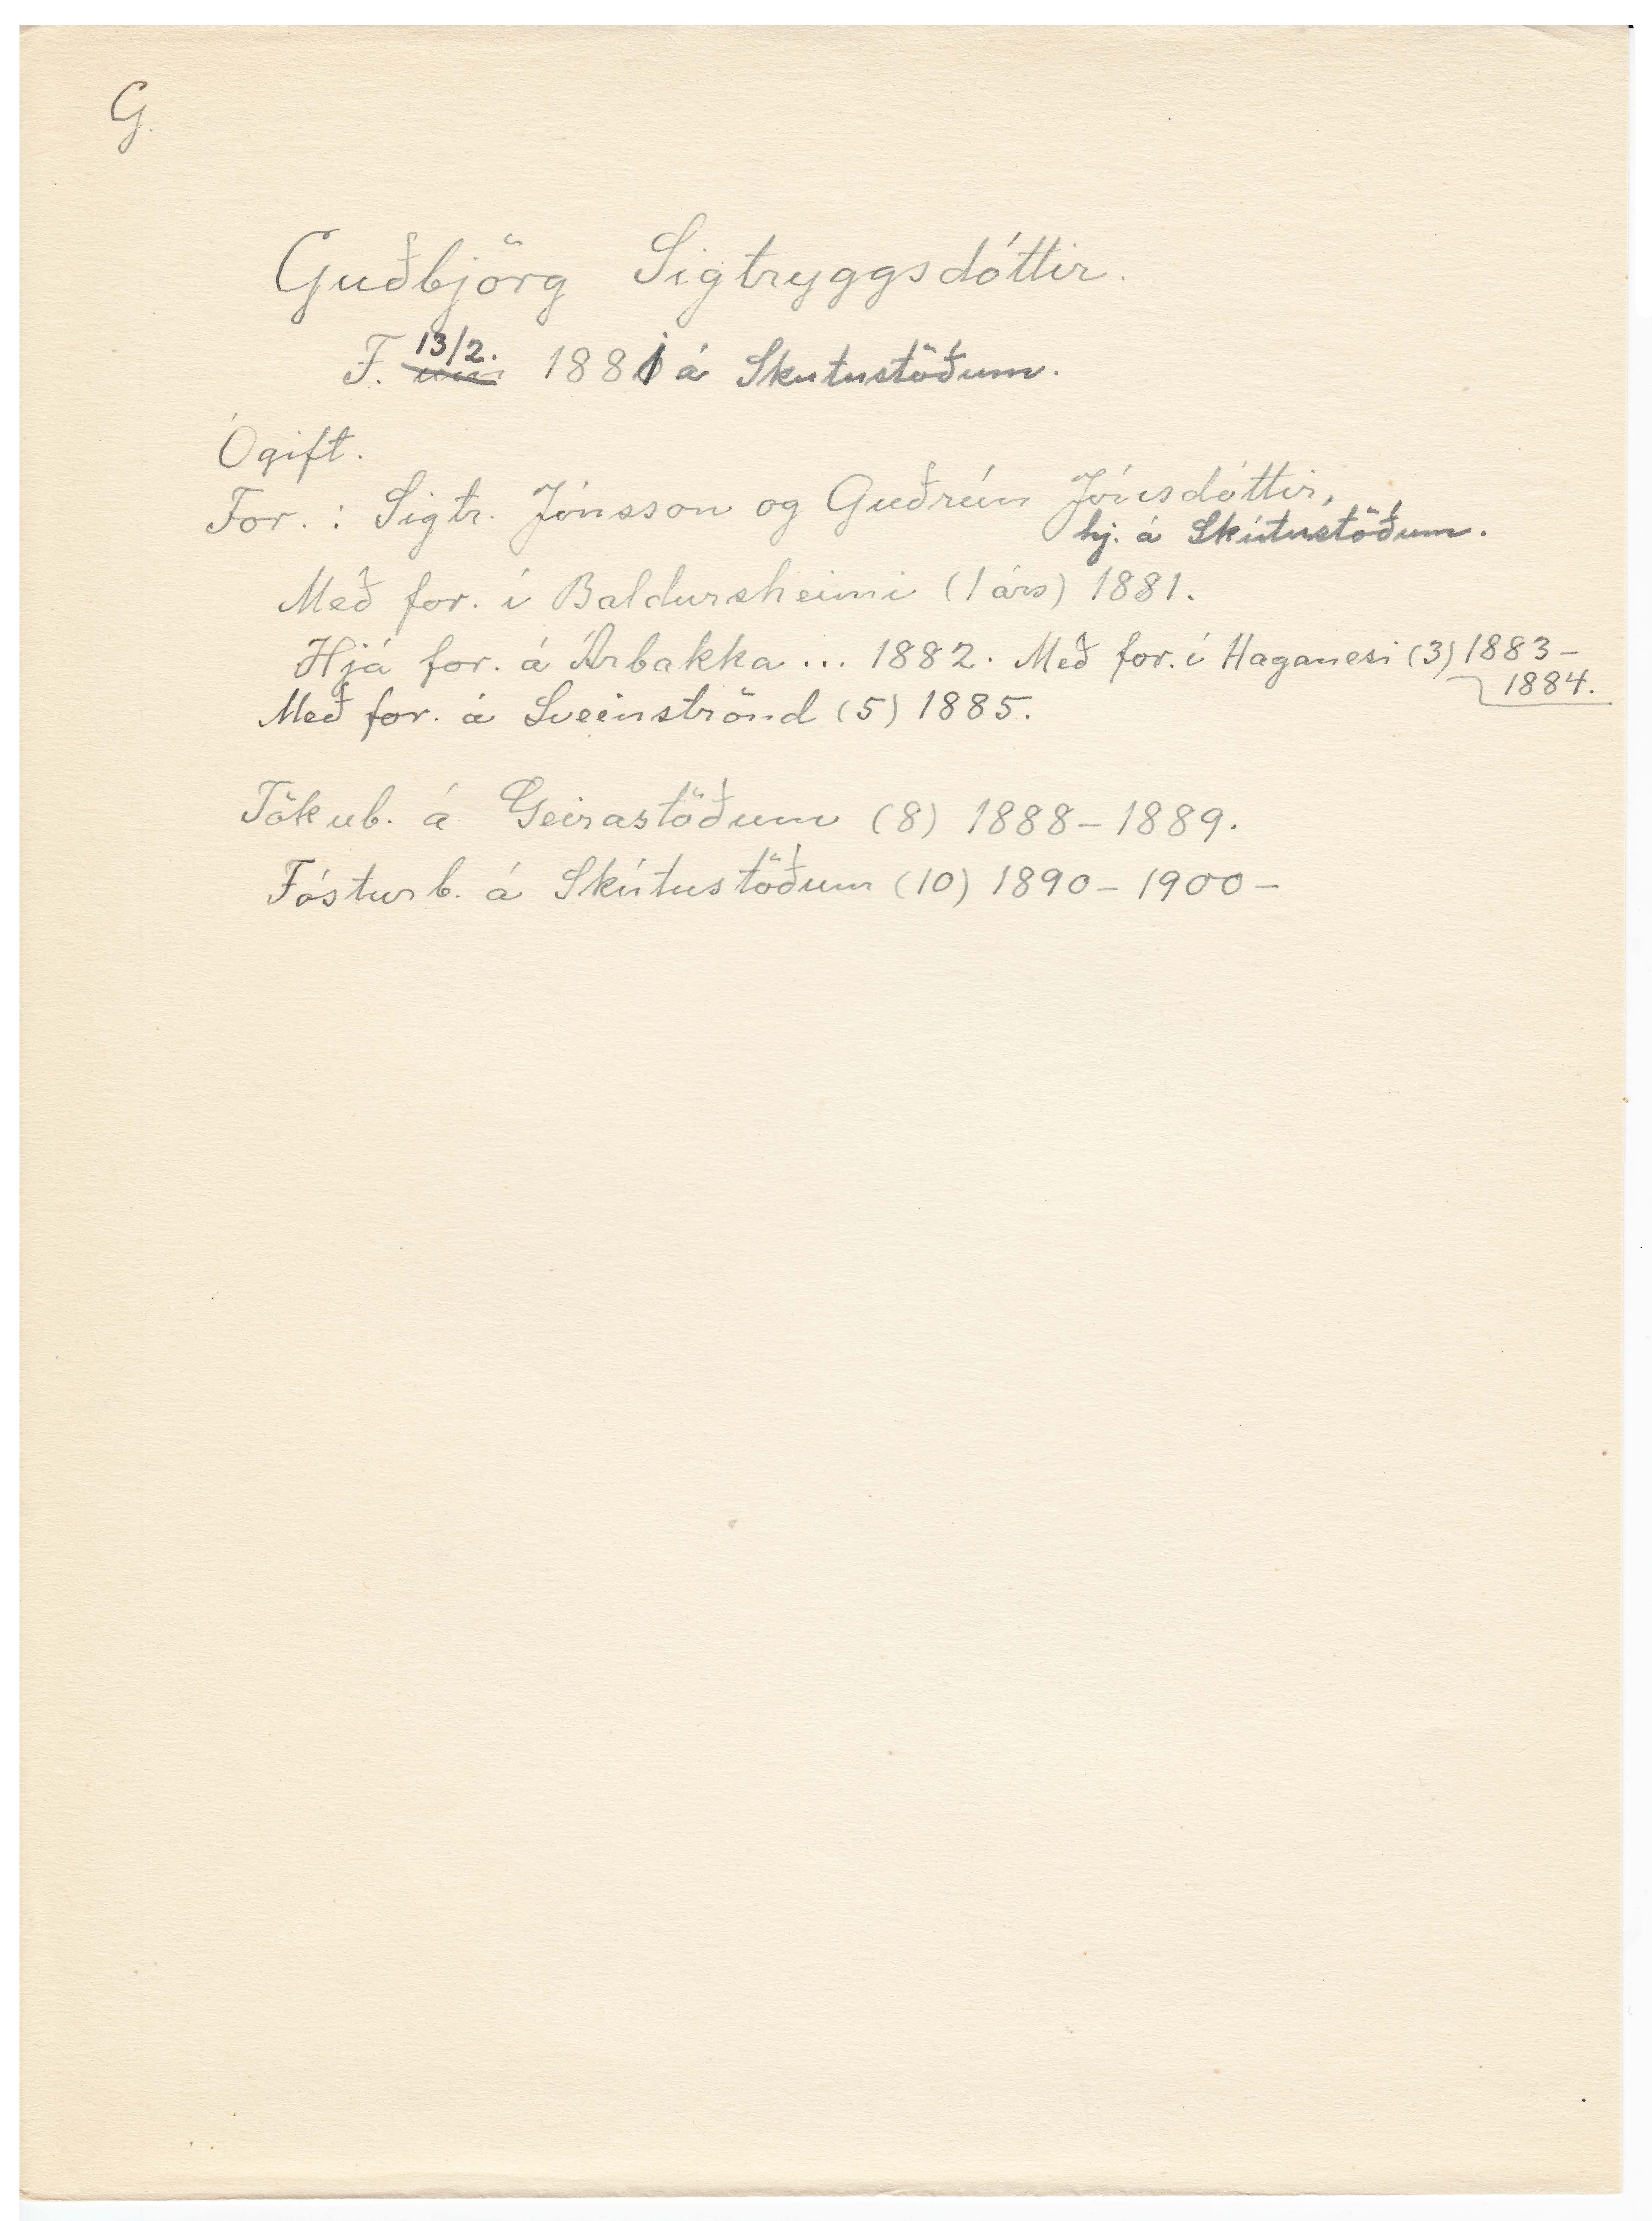 G.
Guðbjörg Sigtryggsdóttir.
F. 13/2. 1881 á Skutustöðum.
Ógift.
For.: Sigtr. Jónsson og Guðrún Jónsdóttir,
hj. á Skútustöðum.
Með for. í Baldursheimi (1 árs) 1881.
Hjá for. á Árbakka ... 1882. Með for. í Haganesi (3) 1883–
1884.
Með for. á Sveinströnd (5) 1885.
Tökub. á Geirastöðum (8) 1888–1889.
Fósturb. á Skútustöðum (10) 1890–1900–